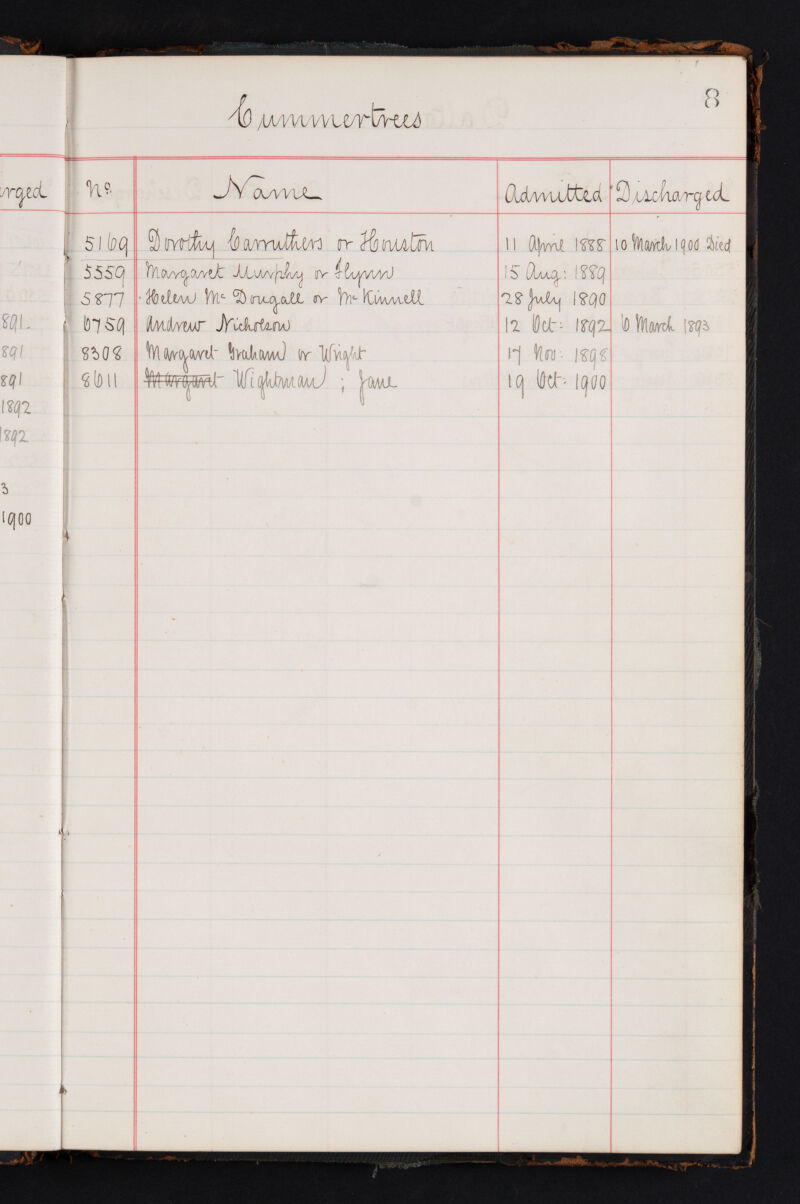 8
Cummertrees
arged No. Name Admitted Discharged
5169 Dorothy Carruthers or Houston 11 April 1888 10 March 1900 Died
5559 Margaret Murphy or Flynn 15 Aug: 1889
5877 Helen Mc Dougall or Mc Kinnell 28 July 1890
891. 6759 Andrew Nicholson 12 Oct: 1892 6 March 1893
891 8308 Margaret Graham or Wright 17 Nov: 1898
891 8611 Margaret Wightman ; Jane 19 Oct: 1900
1892
1892
3
1900